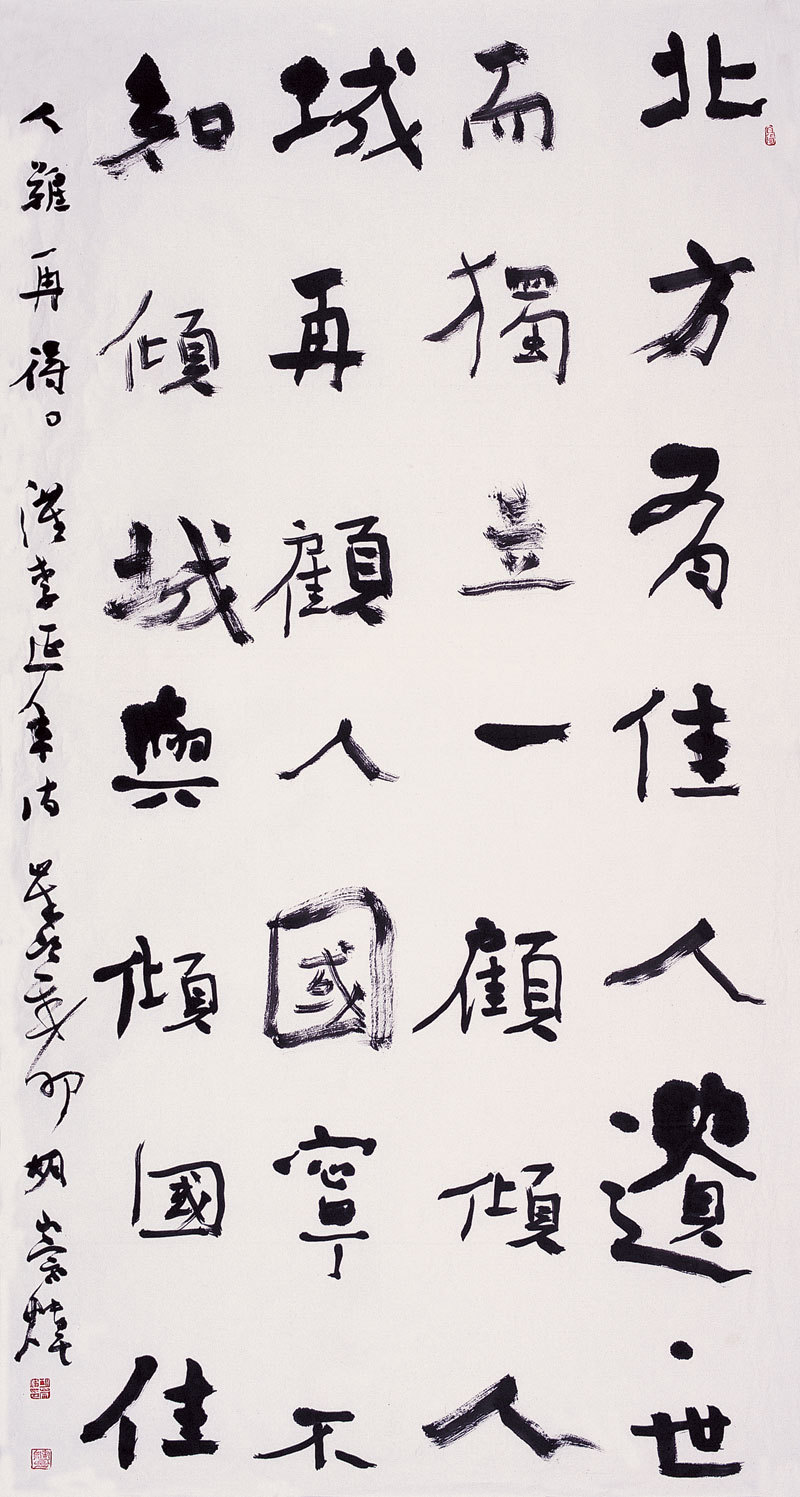 北方有佳人遺·世
而獨立一顧傾人
城再顧人國寧不
知傾城與傾國佳
人難再得。漢李延年詩 歲次辛卯 胡崇煒